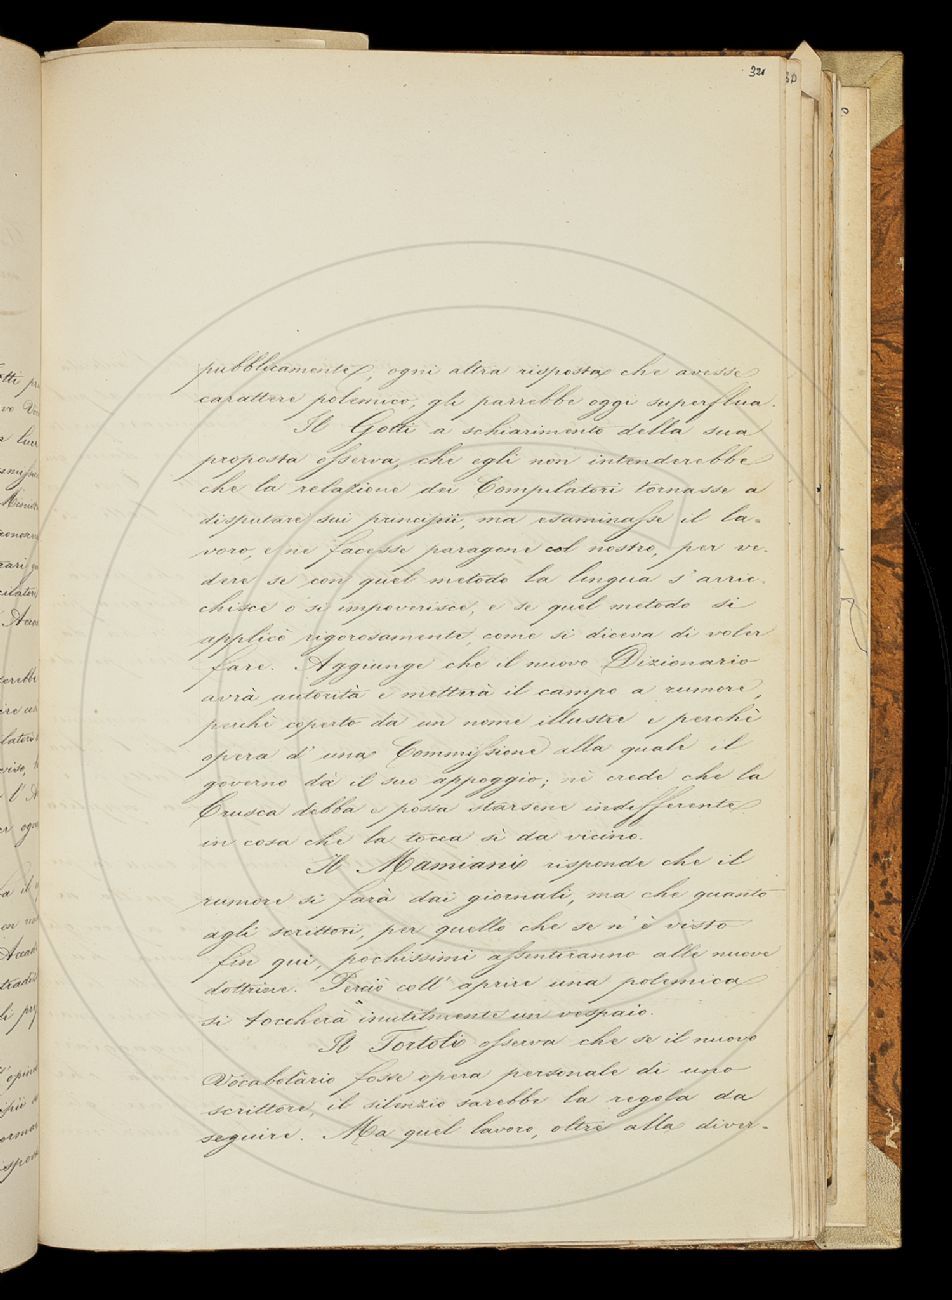 321
pubblicamente, ogni altra risposta che avesse
carattere polemico, gli parrebbe oggi superflua.
Il Gotti a schiarimento della sua
proposta osserva, che egli non intenderebbe
che la relazione dei Compilatori tornasse a
disputare sui principii, ma esaminasse il la-
voro, e ne facesse paragone col nostro, per ve-
dere se con quel metodo la lingua s'arric-
chisce o si impoverisce, e se quel metodo si
applicò rigorosamente, come si diceva di voler
fare. Aggiunge che il nuovo Dizionario
avrà autorità e metterà il campo a rumore,
perchè coperto da un nome illustre e perchè
opera d'una Commissione alla quale il
governo dà il suo appoggio; nè crede che la
Crusca debba e possa starsene indifferente
in cosa che la tocca sì da vicino.
Il Mamiani risponde che il
rumore si farà dai giornali, ma che quanto
agli scrittori, per quello che se n'è visto
fin qui, pochissimi assentiranno alle nuove
dottrine. Perciò coll'aprire una polemica
si toccherà inutilmente un vespaio.
Il Tortoli osserva che se il nuovo
Vocabolario fosse opera personale di uno
scrittore, il silenzio sarebbe la regola da
seguire. Ma quel lavoro, oltre alla diver-